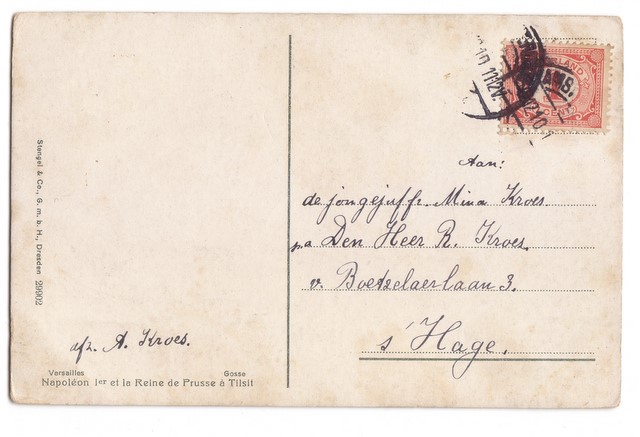 Stengel & Co., G. m. b. H., Dresden 29902
afz. A. Kroes.
Versailles Gosse
Napoléon 1er et la Reine de Prusse à Tilsit
Aan:
de jongejuffr. Mina Kroes
pa Den Heer R. Kroes.
v. Boetzelaerlaan 3.
s'Hage.